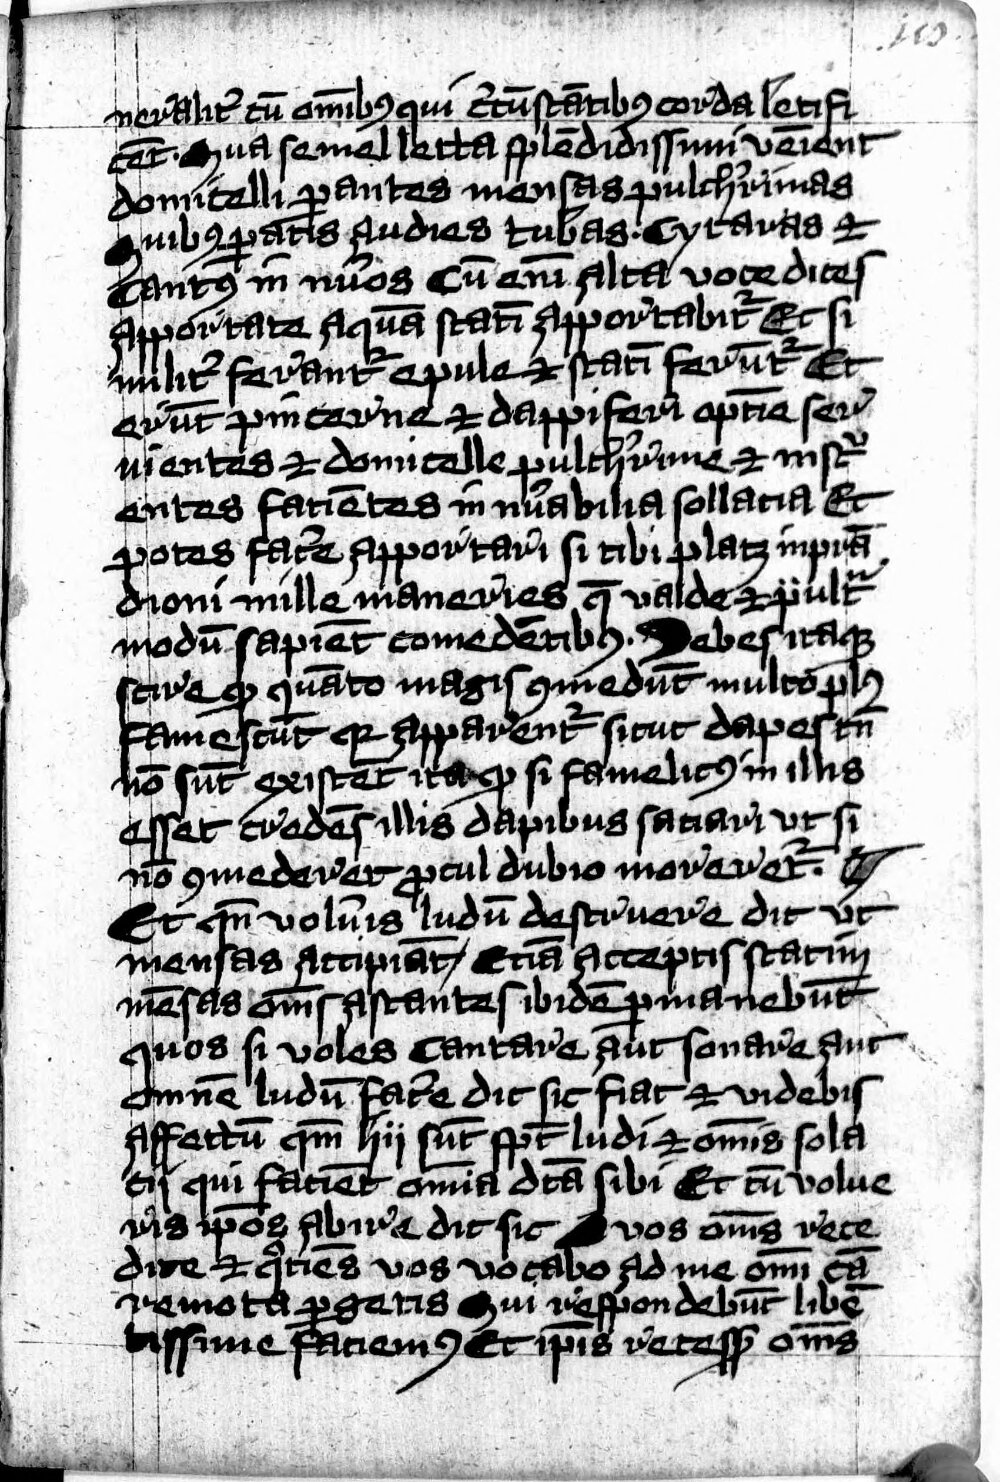 110
neralit̄ cū om̄ibꝰ qui c̄cūstātibꝰ corda letifi
cēt. Qua semel lecta splēdidissimi veīent
domicelli ꝑantes mensas pulch̄rimas
Quibꝰ ꝑatis audies tubas. Cytaras et
Cantꝰ in̄ nūos Cū enī alta voce dices
apportate aquā statī apportabit̄ Et si
milit̄ ferant̄ epule et statī ferūt̄ Et
erūt pincerne et dappiferi optīe ser
uientes et domicelle pulch̄rime et
entes faciētes in̄ nūabilia sollacia Et
potes fac̄e apportari si tibi placꝫ in prā
dioni mille maneries q̄ valde et
modū sapiēt comedētibꝰ. Debes itaqꝫ
scire ꝙ quāto magis ꝯmedūt multo plꝰ
famescūt qꝛ apparent̄ sicut dapes tn̄
nō sūt existēt ita ꝙ si famelicꝰ in illis
esset credēs illis dapibus saciari vt si
nō ꝯmederet ꝓcul dubio morere͞t.
Et qn̄ volūis ludū destruere dic vt
mensas accipiāt, Etiā acceptis statim
mēsas om̄s astantes ibidē ꝑmanebūt
quos si voles Cantare aut sonare aut
omnē ludū fac̄e dic sic fiat et videbis
affectū qm̄ hij sūt spc̄ ludi et om̄is sola
cij qui faciēt omīa dc̄ā sibi Et cū volue
ris ip̄os abire dic sic O vos om̄s rece
dite et qͦciēs vos vocabo ad me om̄i cā
remota ꝑgetis Qui respondebūt libē
tissime faciemꝰ Et ip̄is recess̄ om̄s